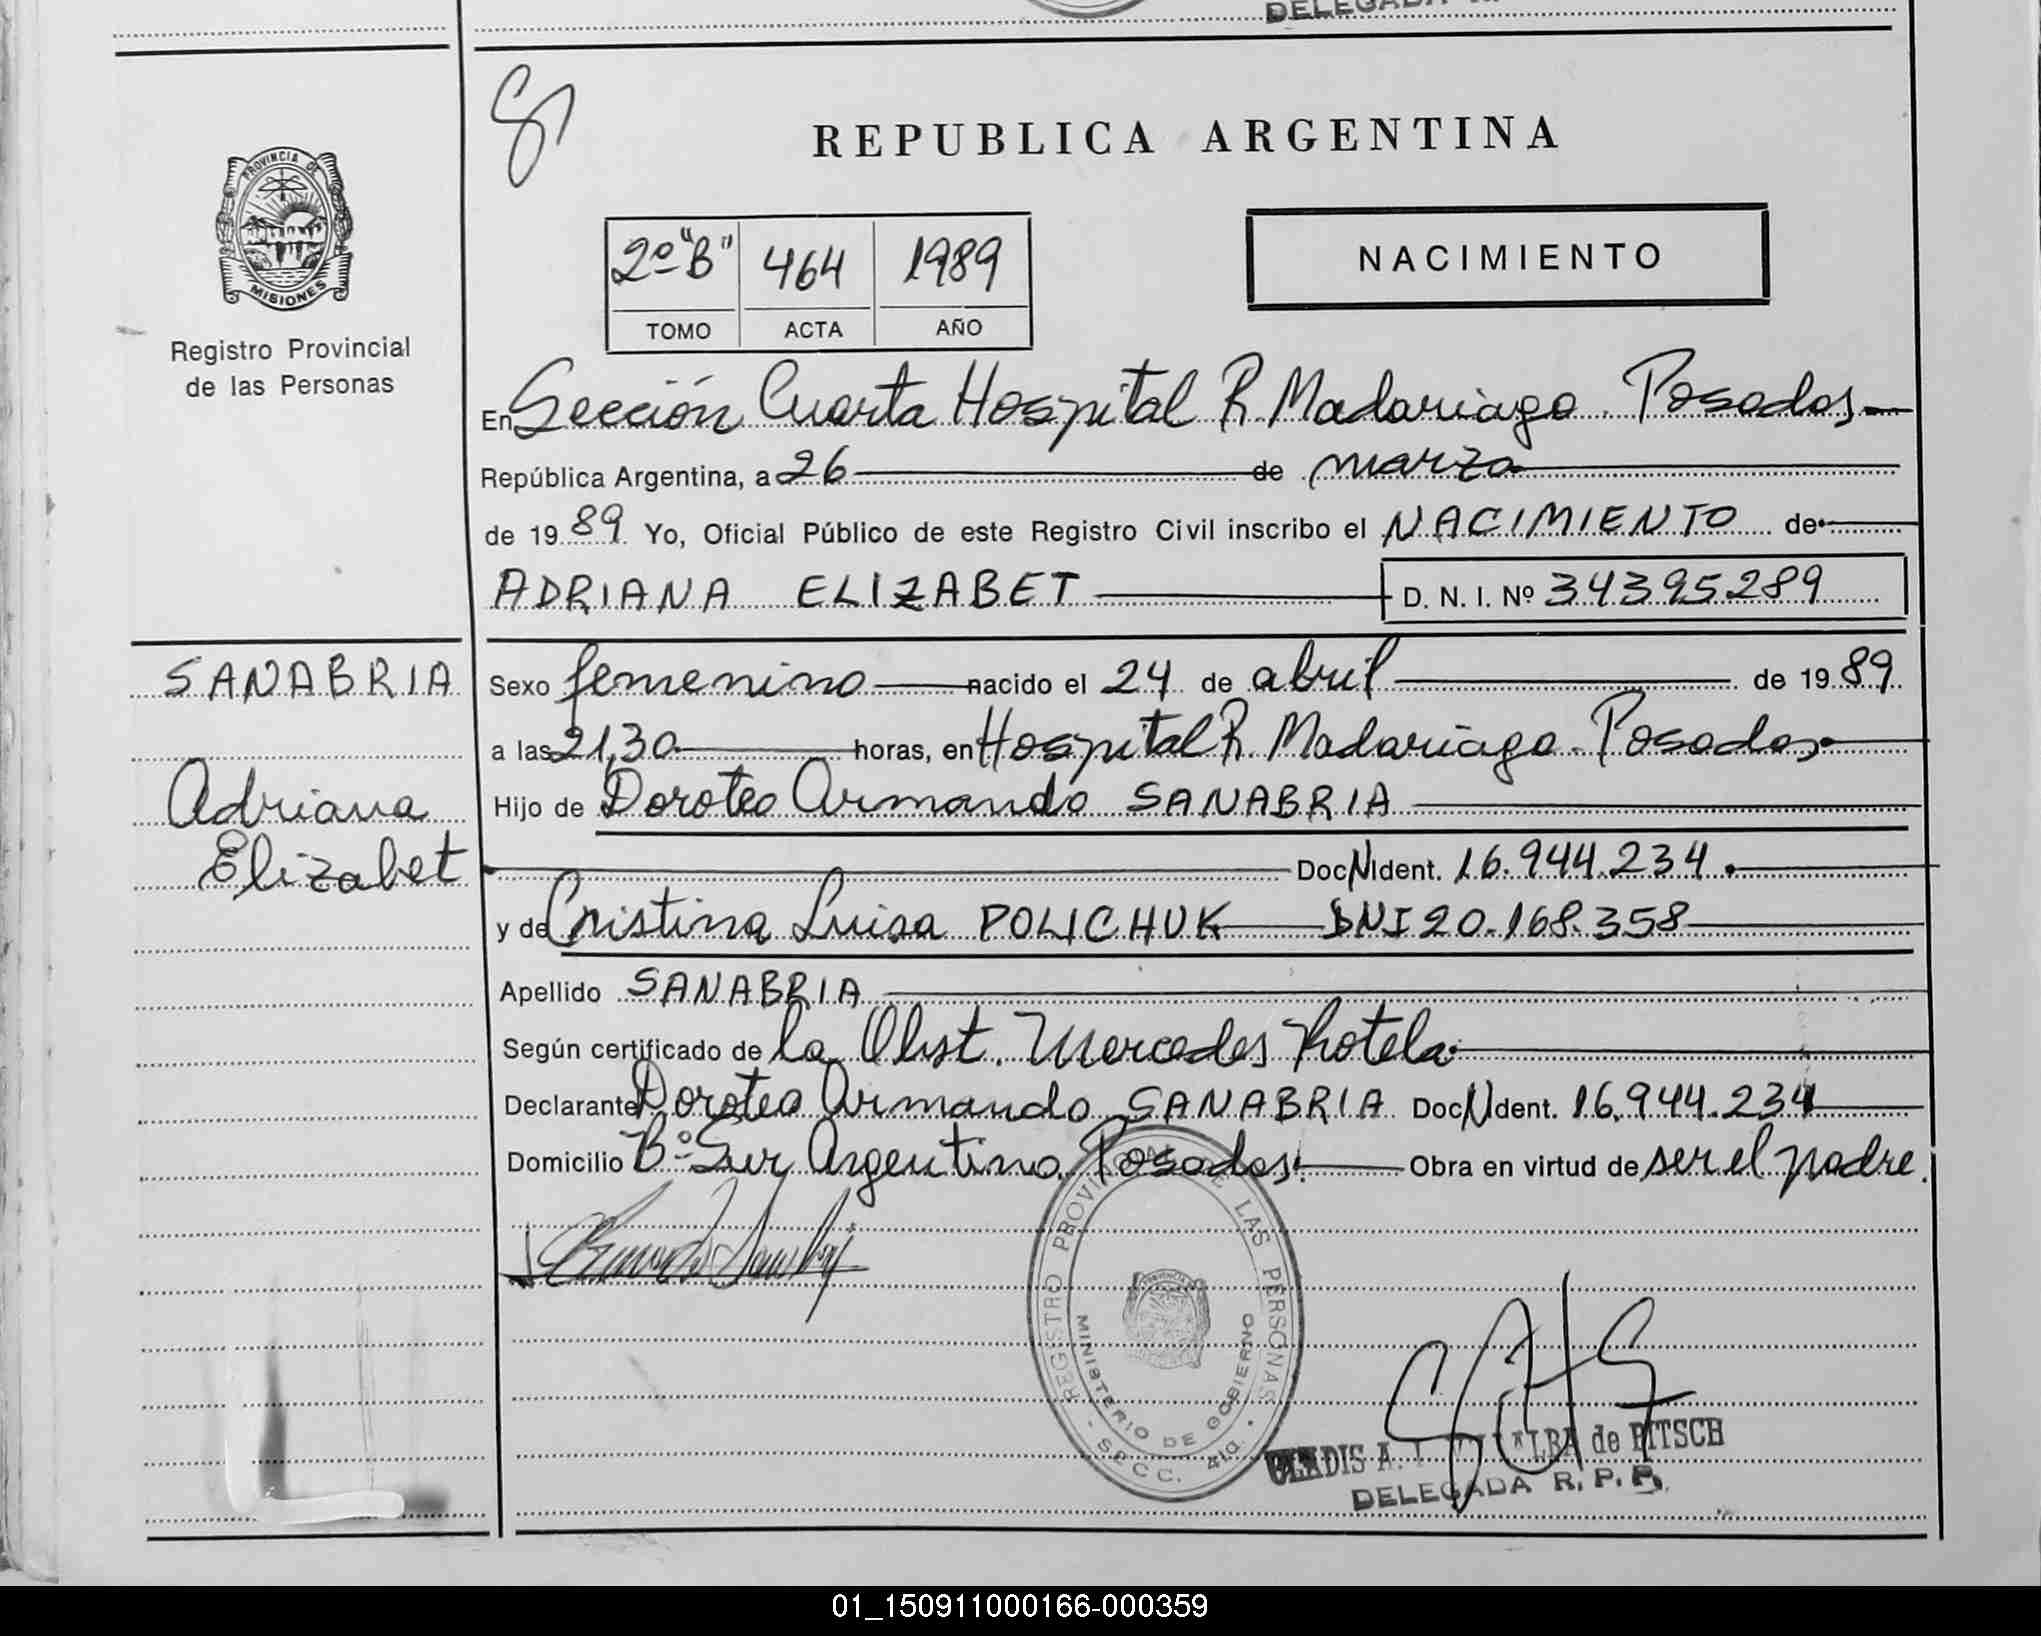 DELEGADA
REPUBLICA ARGENTINA
PROVINCIA DE
MISIONES
Registro Provincial
de las Personas
2º "B" 464 1989
TOMO ACTA AÑO
NACIMIENTO
En Sección Cuarta Hospital R. Madariaga. Posadas
República Argentina, a 26 de marzo
de 19 89 Yo, Oficial Público de este Registro Civil inscribo el NACIMIENTO de
ADRIANA ELIZABET D. N. I. Nº 34395289
SANABRIA
Adriana
Elizabet
Sexo femenino nacido el 24 de abril de 19 89
a las 21,30 horas, en Hospital R. Madariaga. Posadas
Hijo de Doroteo Armando SANABRIA
Doc N Ident. 16.944.234.
y de Cristina Luisa POLICHUK DNI 20.168.358
Apellido SANABRIA
Según certificado de la Obst. Mercedes Rotela
Declarante Doroteo Armando SANABRIA Doc N Ident. 16.944.234
Domicilio Bº Sur Argentino. Posadas. Obra en virtud de ser el padre.
REGISTRO PROVINCIAL DE LAS PERSONAS
MINISTERIO DE GOBIERNO
GLADIS A. VILLALBA de PITSCH
DELEGADA R. P. P.
01_150911000166-000359